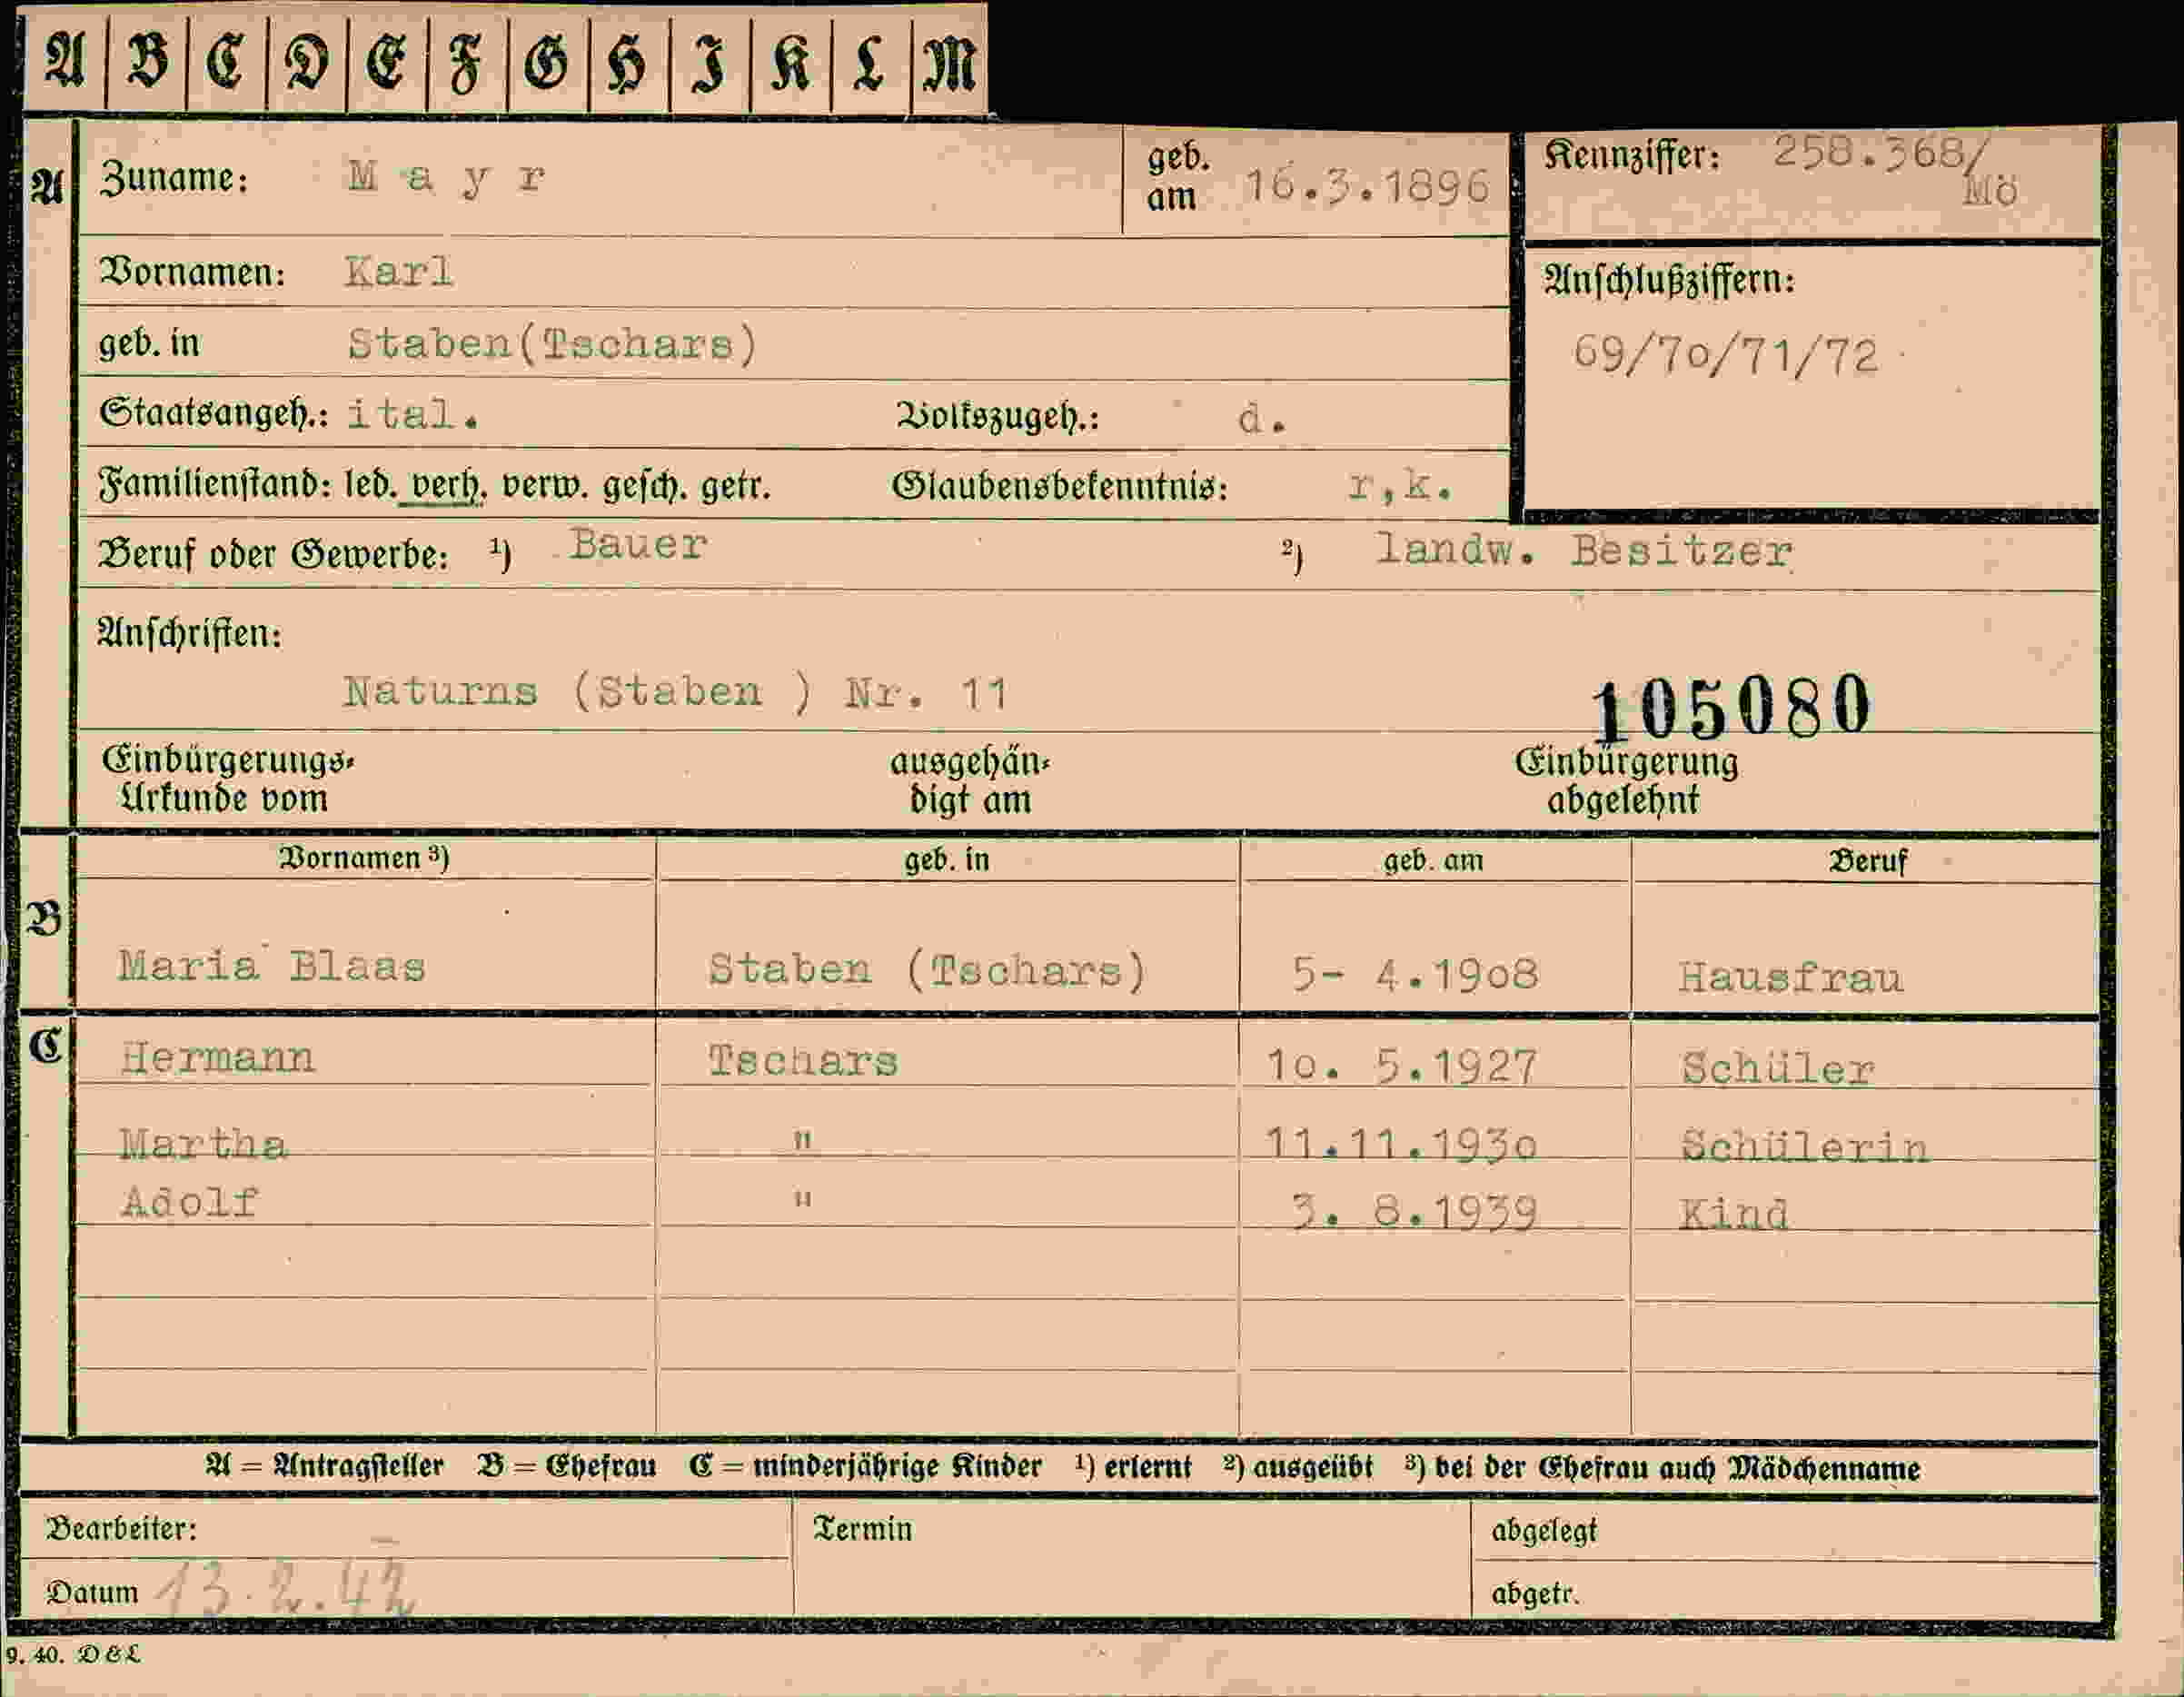 A B C D E F G H I K L M
A Zuname: Mayr geb. am 16.3.1896 Kennziffer: 258.368/
Mö
Vornamen: Karl Anschlußziffern:
geb. in Staben(Tschars) 69/7o/71/72
Staatsangeh.: ital. Volkszugeh.: d.
Familienstand: led. verh. verw. gesch. getr. Glaubensbekenntnis: r,k.
Beruf oder Gewerbe: ¹) Bauer ²) landw. Besitzer
Anschriften:
Naturns (Staben ) Nr. 11 105080
Einbürgerungs- ausgehän- Einbürgerung
Urkunde vom digt am abgelehnt
Vornamen ³) geb. in geb. am Beruf
B
Maria Blaas Staben (Tschars) 5- 4.19o8 Hausfrau
C Hermann Tschars 1o. 5.1927 Schüler
Martha " 11.11.193o Schülerin
Adolf " 3. 8.1939 Kind
A = Antragsteller B = Ehefrau C = minderjährige Kinder ¹) erlernt ²) ausgeübt ³) bei der Ehefrau auch Mädchenname
Bearbeiter: Termin abgelegt
Datum 13.2.42 abgetr.
9. 40. D & L